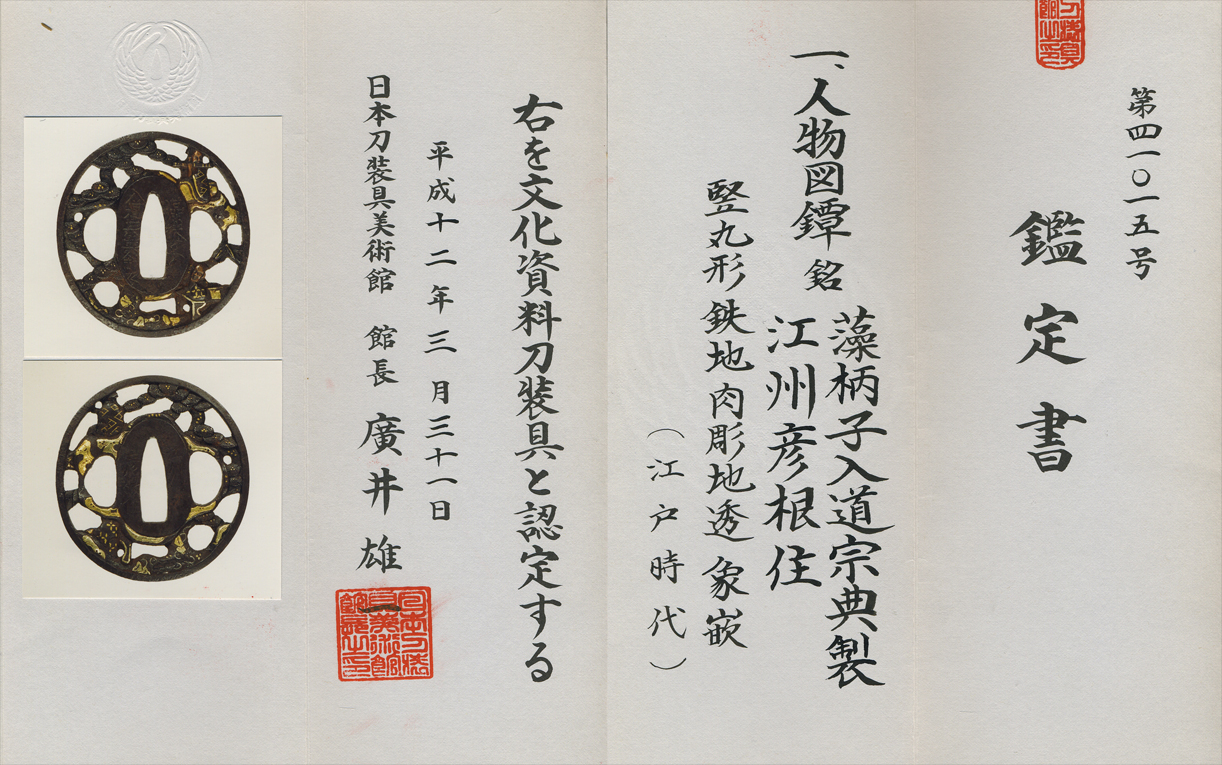 第四一〇一五号
鑑定書
一、人物図鐔 銘
藻柄子入道宗典製
江州彦根住
竪丸形 鉄地 肉彫地透 象嵌
(江戸時代)
右を文化資料刀装具と認定する
平成十二年三月三十一日
日本刀装具美術館 館長 廣井雄一